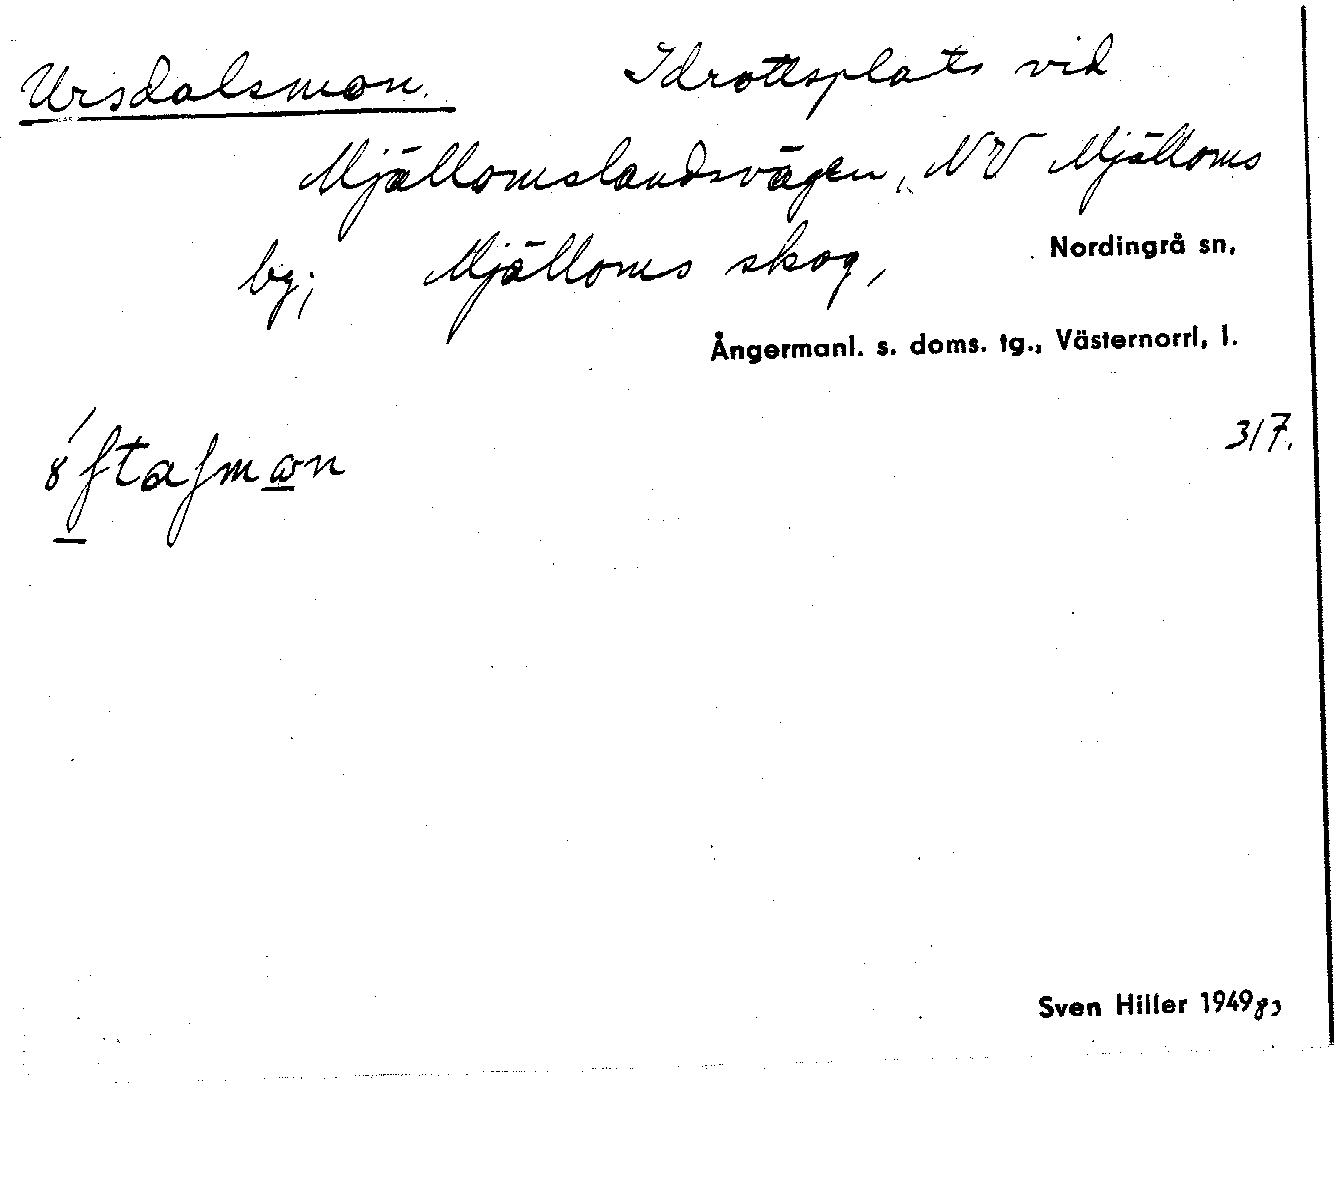 Ursdalsmon. Idrottsplats vid
Mjällomslandsvägen, NV Mjälloms
by; Mjälloms skog, Nordingrå sn,
Ångermanl. s. doms. tg., Västernorrl, l.
317.
Sven Hiller 1949